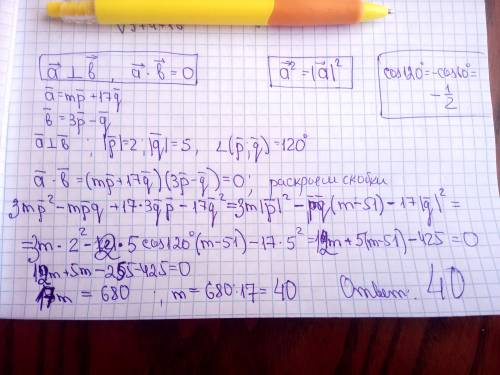 a⃗ ⊥ b⃗, a⃗ · b⃗ = 0
a⃗² = |a⃗|²
cos120° = -cos60° =
- 1/2
a̅ = mp̅ + 17q̅
b̅ = 3p̅ - q̅
a̅ ⊥ b̅ ; |p̅| = 2, |q̅| = 5, ∠(p̅; q̅) = 120°
a̅ · b̅ = (mp̅ + 17q̅)(3p̅ - q̅) = 0; раскроем скобки
3mp̅² - mpq + 17·3q̅p̅ - 17q̅² = 3m|p̅|² - p̅q̅(m-51) - 17|q̅|² =
= 3m · 2² - 2 · 5 cos120°(m-51) - 17·5² = 12m + 5(m-51) - 425 = 0
12m + 5m - 255 - 425 = 0
17m = 680 , m = 680:17 = 40 Ответ: 40